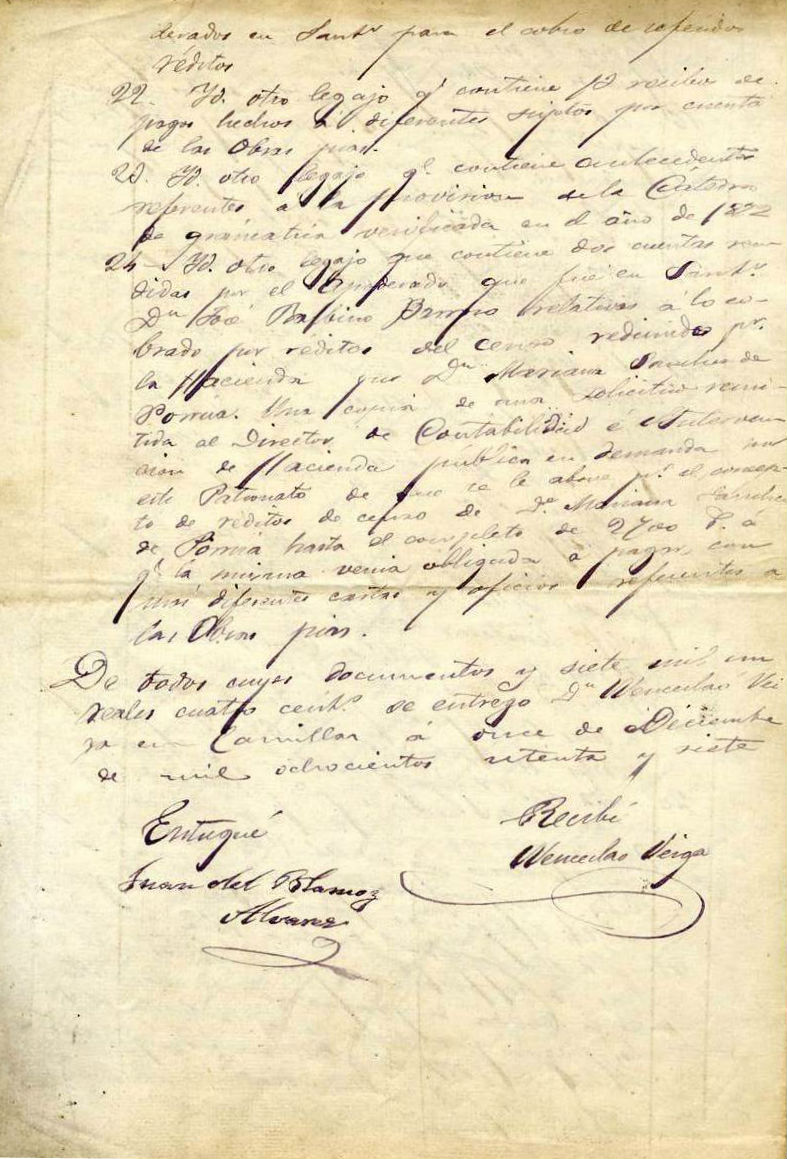 derados en Sant.r para el cobro de referidos
réditos
22. Yd. otro legajo q.e contiene recibos de
pagos hechos á diferentes sujetos por cuenta
de las Obras pias.
23. Yd. otro legajo q.e contiene antecedentes
referentes á la provision de la Catedra
de gramatica verificada en el año de 1822
24 - Yd. otro legajo que contiene dos cuentas ren-
didas por el Apoderado que fué en Sant.r
D.n José Barreno relativas á lo co-
brado por reditos del censo redimido p.r
la Hacienda que D.ña Mariana Sanchez de
Porrúa. Una copia de una solicitud remi-
tida al Director de Contabilidad é Interven-
cion de Hacienda pública en demanda por
este Patronato de que se le abone p.r el concep-
to de réditos de censo de D.a Mariana Sanchez
de Porrúa hasta el completo de 2700 r. á
q.e la misma venia obligada á pagar, con
mas diferentes cartas y oficios referentes a
las Obras pias.
De todos cuyos documentos y siete mil un
reales cuatro cent.s se entrego D.n Wenceslao Vei
ga en Comillas á once de Diciembre
de mil ochocientos setenta y siete
Entregué
Recibí
Wenceslao Veiga
Juan del
Alvarez